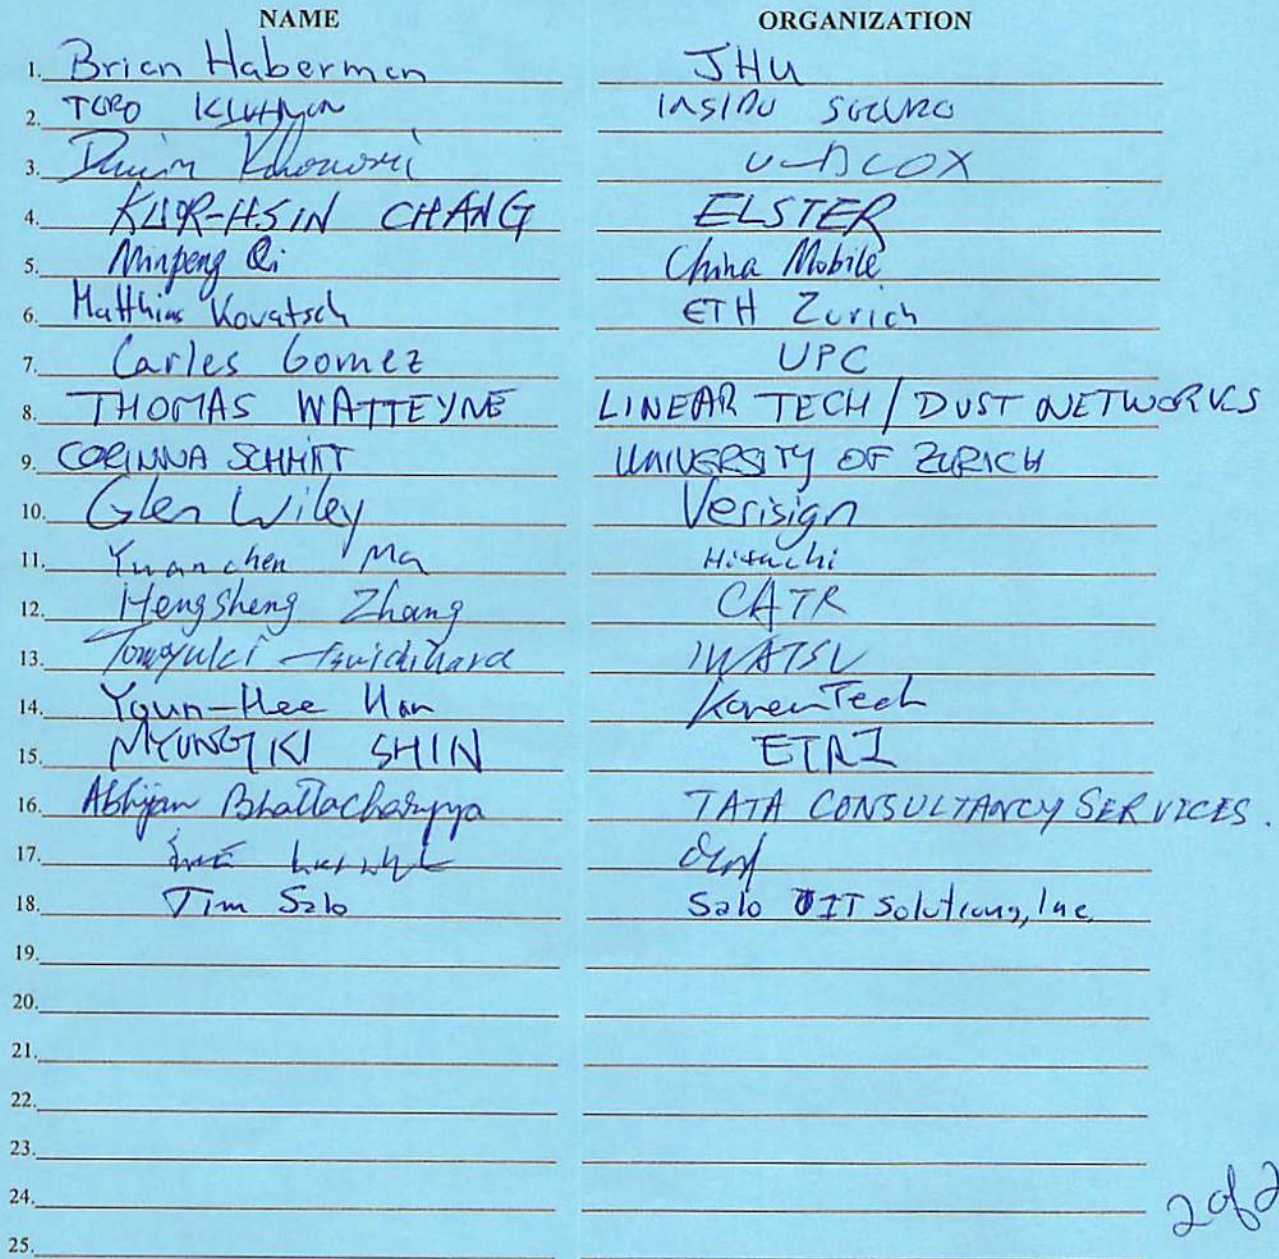 NAME ORGANIZATION
1. Brian Haberman JHU
2. TERO INSIDE SECURE
3.
4. KUOR-HSIN CHANG ELSTER
5. Minpeng Qi China Mobile
6. Matthias Kovatsch ETH Zurich
7. Carles Gomez UPC
8. THOMAS WATTEYNE LINEAR TECH / DUST NETWORKS
9. CORINNA SCHMITT UNIVERSITY OF ZURICH
10. Glen Wiley Verisign
11. Yuanchen Ma Hitachi
12. Hengsheng Zhang CATR
13. Tomoyuki IWATSU
14. Youn-Hee Han KoreaTech
15. MYUNGKI SHIN ETRI
16. Abhijan Bhattacharyya TATA CONSULTANCY SERVICES.
17.
18. Tim Salo Salo IT Solutions, Inc.
19.
20.
21.
22.
23.
24.
25.
2 of 2